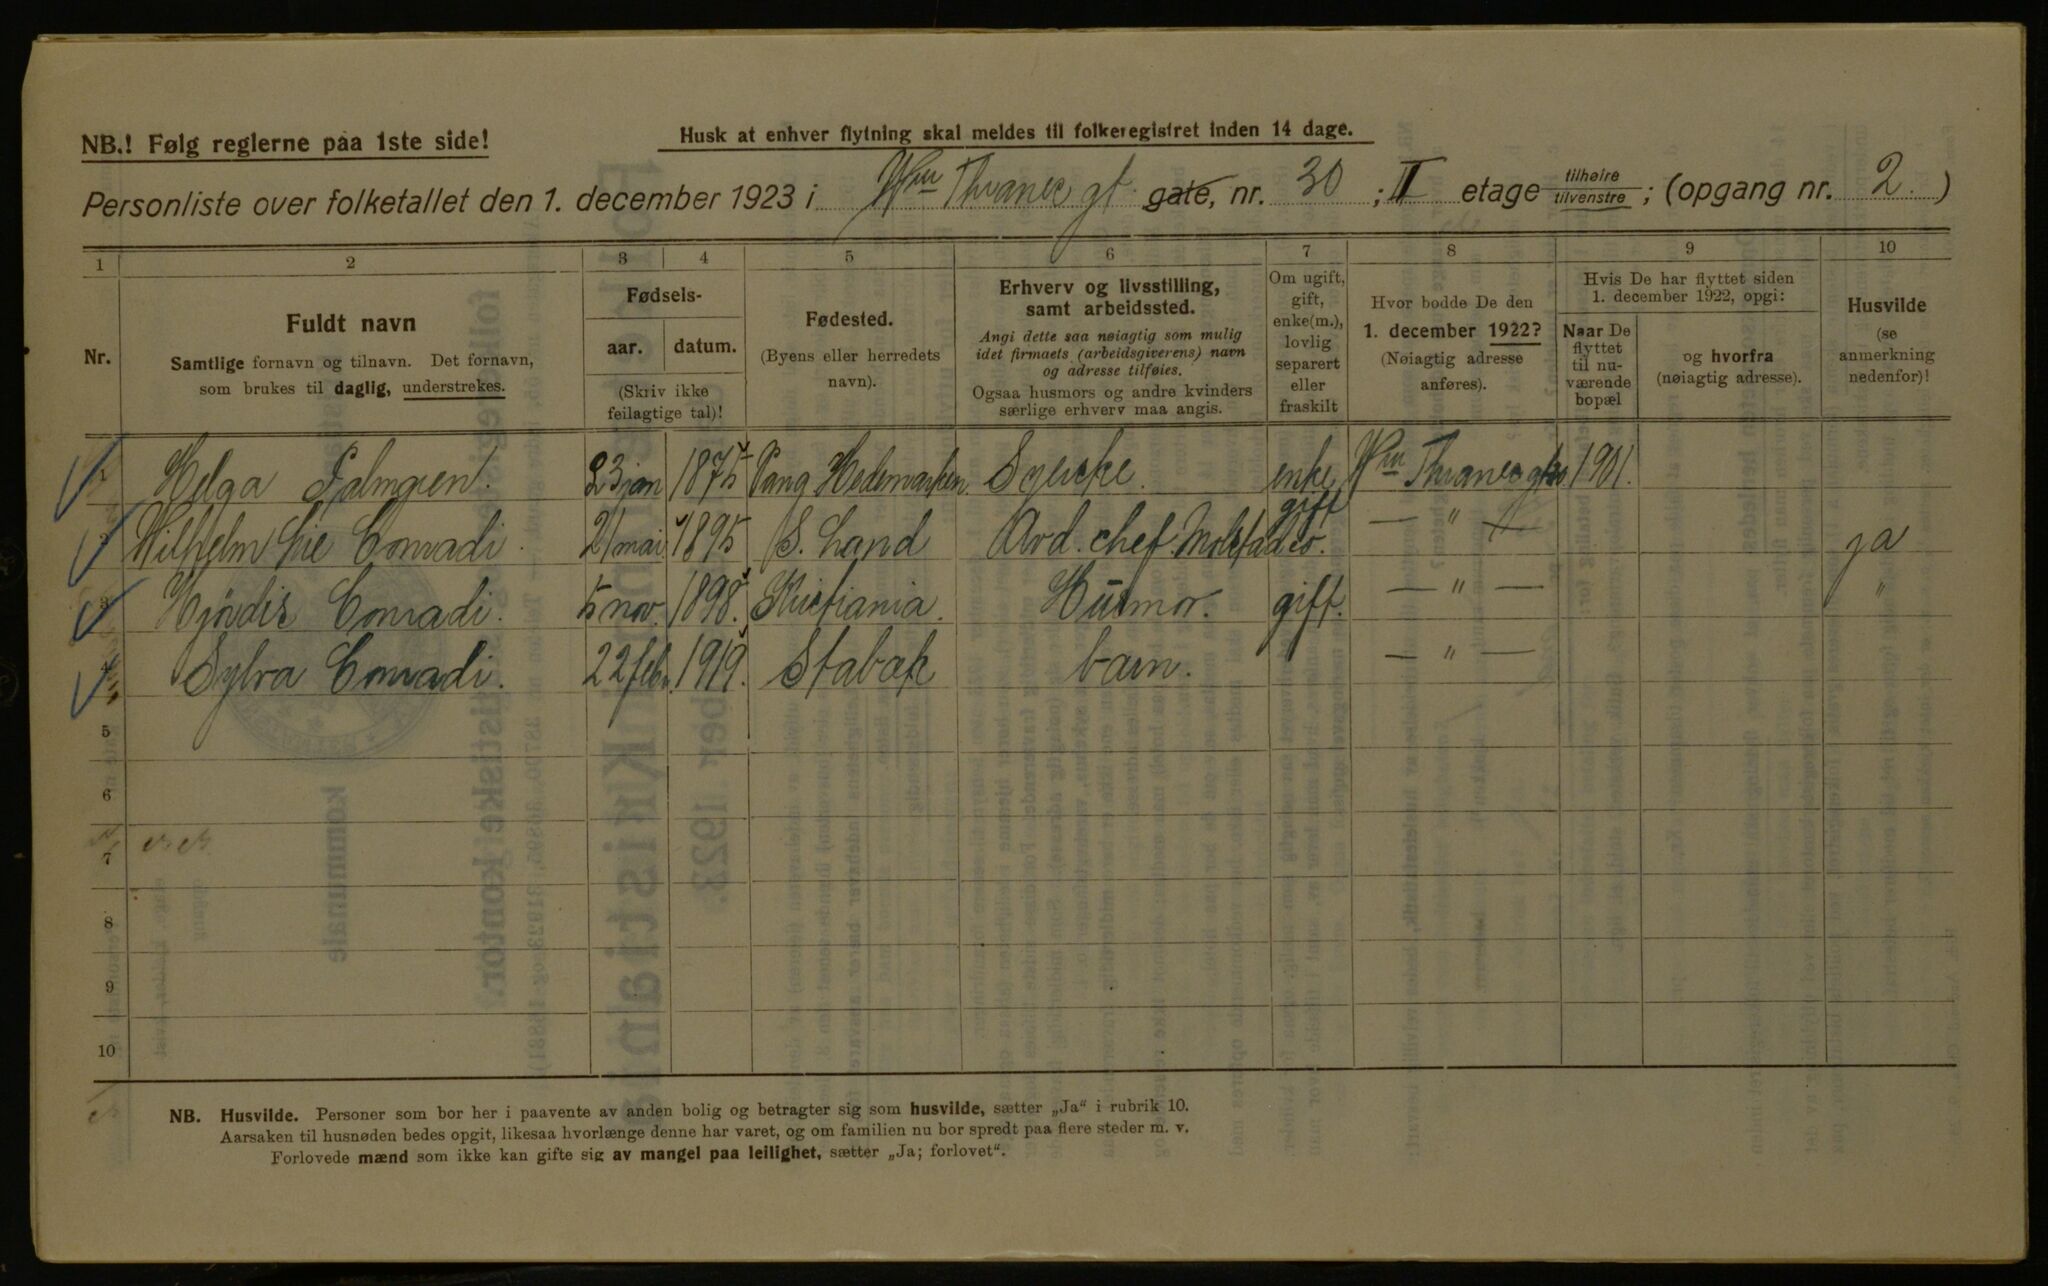 NB.! Følg reglerne paa 1ste side!
Husk at enhver flytning skal meldes til folkeregistret inden 14 dage.
Personliste over folketallet den 1. december 1923 i Mkus Thranes gt. gate, nr. 30 ; II etage tilhøire tilvenstre ; (opgang nr. 2. )
1 2 3 4 5 6 7 8 9 10
Nr.
Fuldt navn
Samtlige fornavn og tilnavn. Det fornavn,
som brukes til daglig, understrekes.
Fødsels-
aar. datum.
(Skriv ikke
feilagtige tal)!
Fødested.
(Byens eller herredets
navn).
Erhverv og livsstilling,
samt arbeidssted.
Angi dette saa nøiagtig som mulig
idet firmaets (arbeidsgiverens) navn
og adresse tilføies.
Ogsaa husmors og andre kvinders
særlige erhverv maa angis.
Om ugift,
gift,
enke(m.),
lovlig
separert
eller
fraskilt
Hvor bodde De den
1. december 1922?
(Nøiagtig adresse
anføres).
Hvis De har flyttet siden
1. december 1922, opgi:
Naar De
flyttet
til nu-
værende
bopæl
og hvorfra
(nøiagtig adresse).
Husvilde
(se
anmerkning
nedenfor)!
1 Helga Palmgren. 23 jan 1875 Vang Hedemarken. Syerske. enke Thranes gt 30 1901.
2 Wilhelm Lie Conradi. 21 mai 1895 S. Land Avd. chef. Molstad & Co. gift — " — ja
3 Hjördis Conradi. 5 nov. 1898. Kristiania. Husmor. gift. — " — "
4 Sylva Conradi. 22 feb. 1919. Stabæk barn. — " —
5
6
7
8
9
10
NB. Husvilde. Personer som bor her i paavente av anden bolig og betragter sig som husvilde, sætter „Ja" i rubrik 10.
Aarsaken til husnøden bedes opgit, likesaa hvorlænge denne har varet, og om familien nu bor spredt paa flere steder m. v.
Forlovede mænd som ikke kan gifte sig av mangel paa leilighet, sætter „Ja; forlovet".